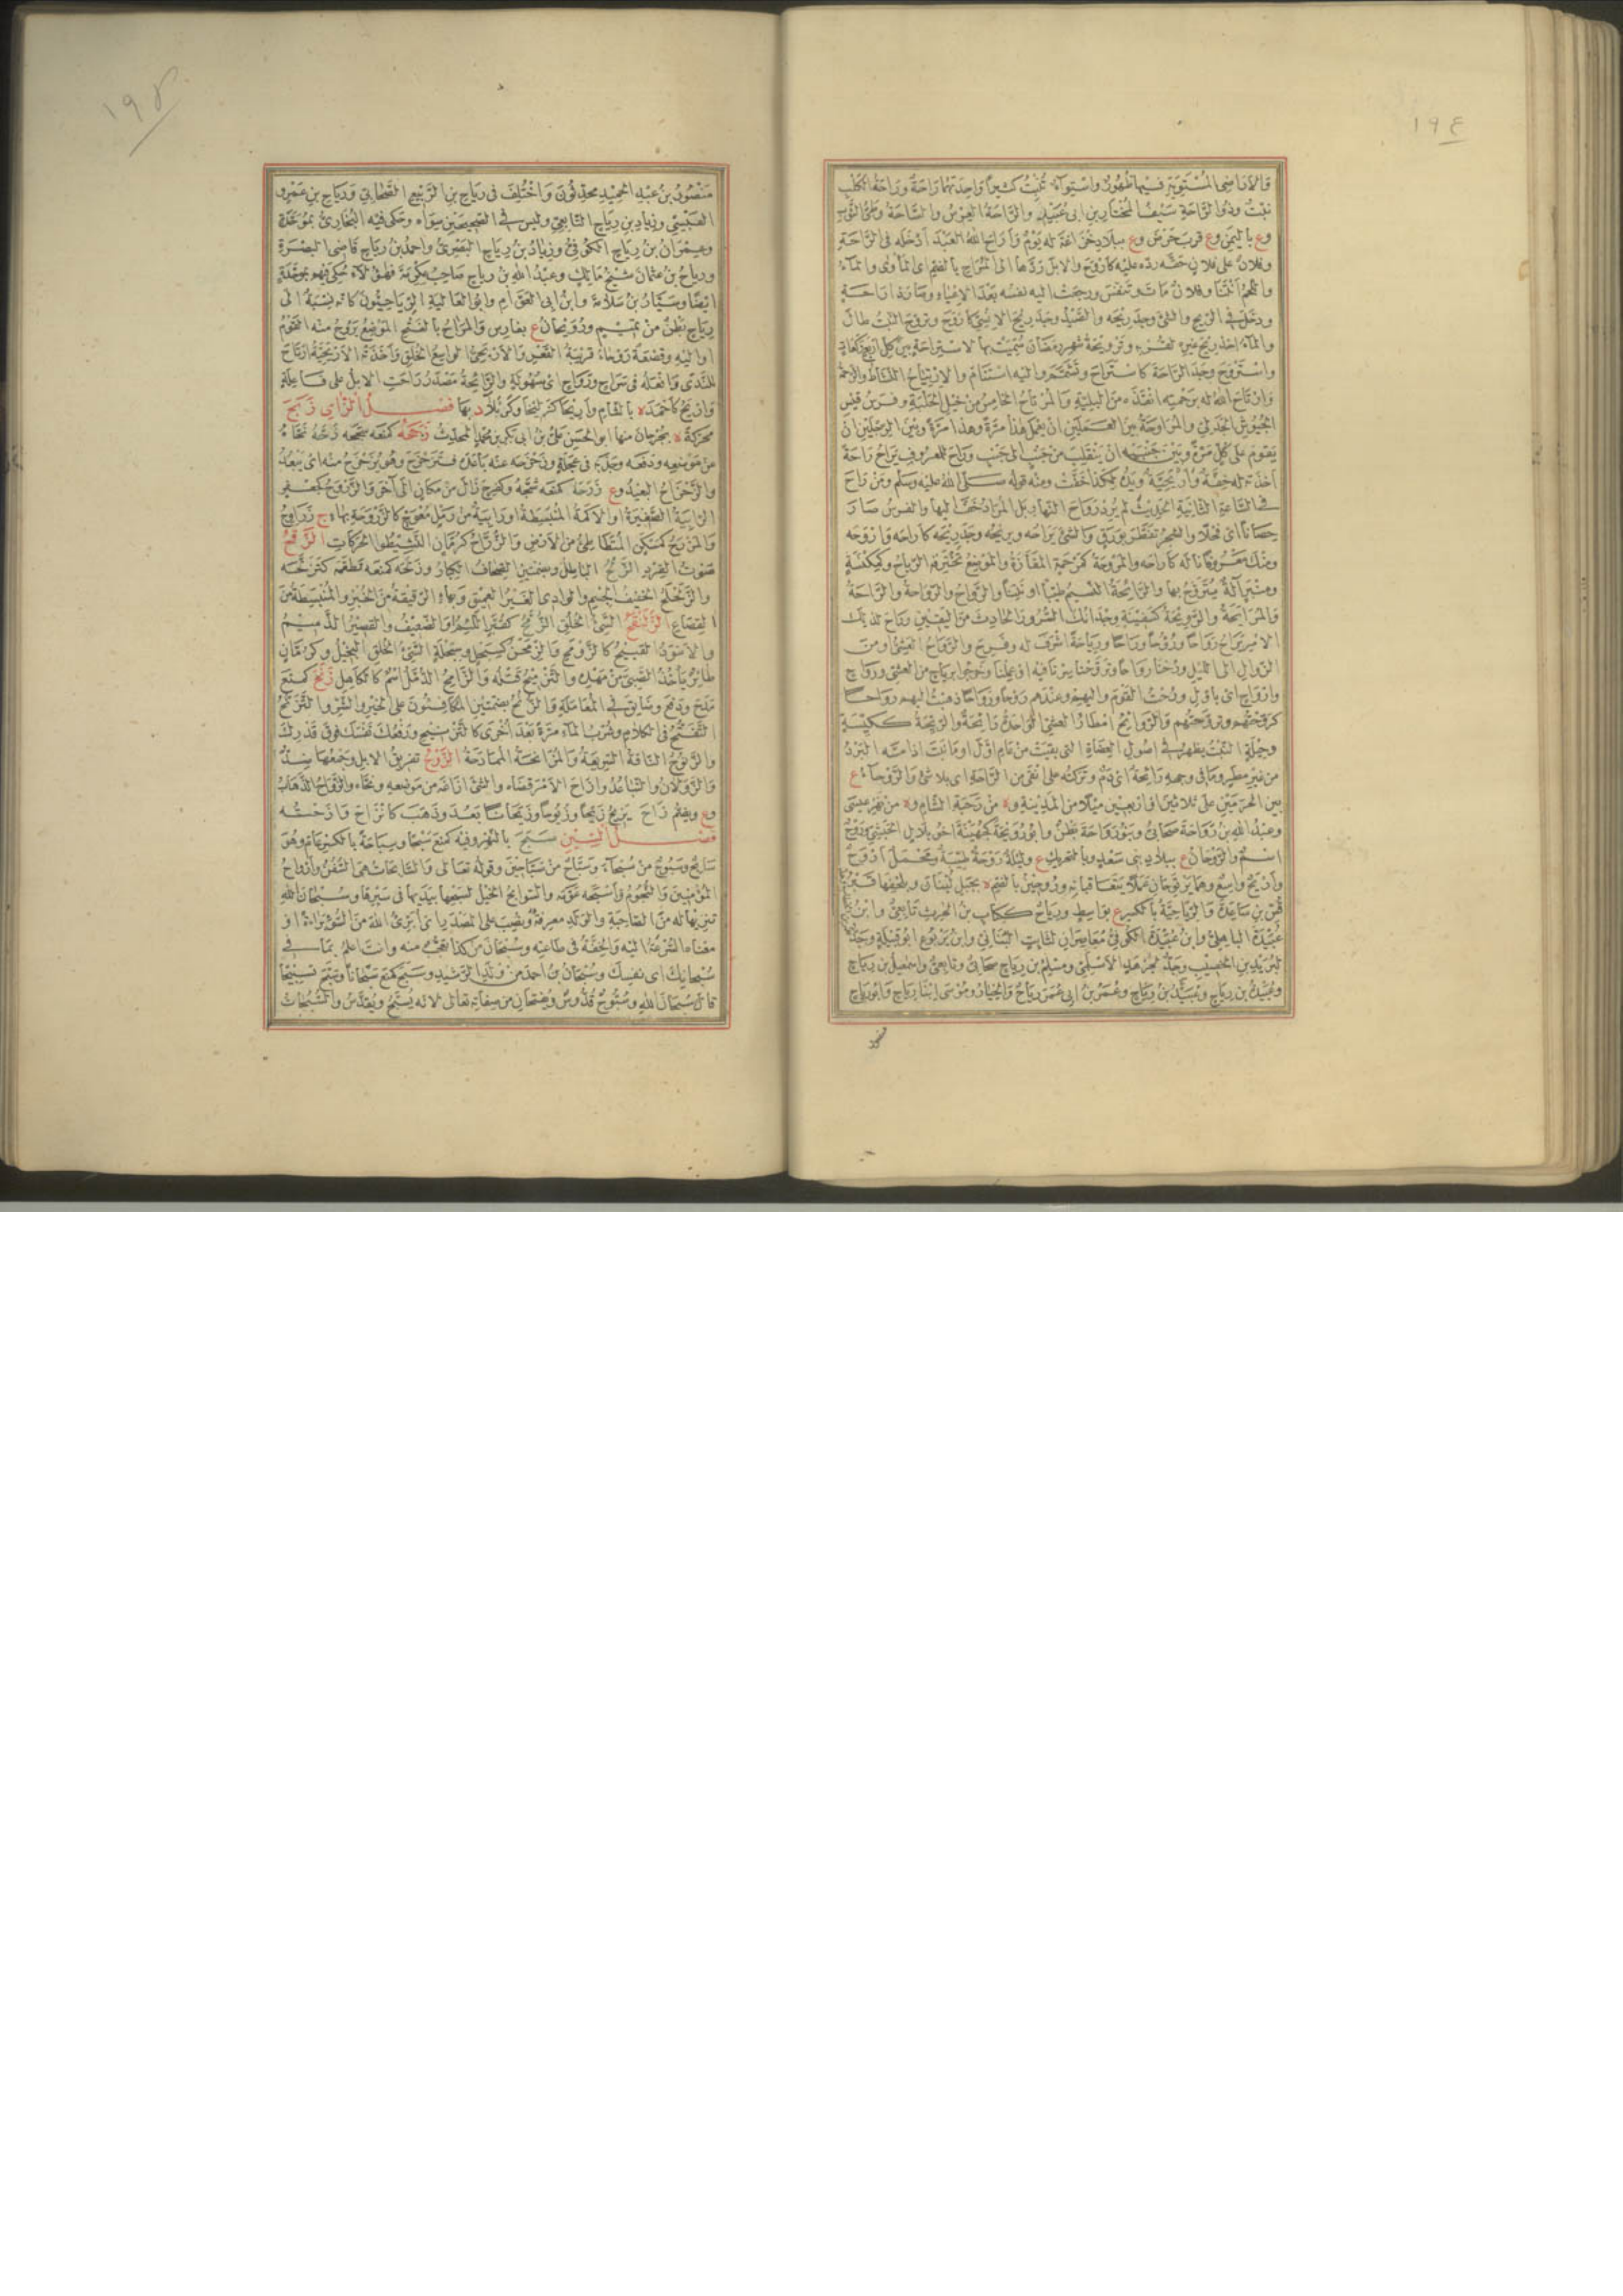 ١٩٤
والأراضى المستوية فيها ظهور واستواء تنبت كثيرا واحدتهما راحة وراحة الكلب
نبت وذو الراحة سيف المختار بن ابى عبيد والراحة العرس والساحة وطى الثوب
وع باليمن وع قرب حرض وع ببلاد خزاعة له يوم وأراح الله العبد أدخله فى الراحة
وفلان على فلان حقه رده عليه كأروح والابل ردها الى المراح بالضم اى المأوى والماء
واللحم أنتنا وفلان مات وتنفس ورجعت اليه نفسه بعد الاعياء وصار ذا راحة
ودخل فى الريح والشئ وجد ريحه والصيد وجد ريح الانسى كأروح وتروح النبت طال
والماء اخذ ريح غيره لقربه وترويحة شهر رمضان سميت بها لاستراحة بين كل اربع ركعات
واستروح وجد الراحة كاستراح وتشمم واليه استنام والارتياح النشاط والرحمة
وارتاح الله له برحمته انقذه من البلية والمرتاح الخامس من خيل الحلبة وفرس قيس
الجيوش الجدلى والمراوحة بين العملين ان يعمل هذا مرة وهذا مرة وبين الرجلين ان
يقوم على كل مرة وبين جنبيه ان ينقلب من جنب الى جنب وراح للمعروف يراح راحة
اخذته له خفة وأريحية ويده لكذا خفت ومنه قوله صلى الله عليه وسلم ومن راح
فى الساعة الثانية الحديث لم يرد رواح النهار بل المراد خف اليها والفرس صار
حصانا اى فحلا والشجر تفطر بورق والشئ يراحه ويريحه وجد ريحه كأراحه وأروحه
ومنك معروفا ناله كأراحه والمروحة كمرحمة المفازة والموضع تخترقه الرياح وكمكنسة
ومنبر آلة يتروح بها والرائحة النسيم طيبا او نتنا والرواح والرواحة والراحة
والمرايحة والرويحة كسفينة وجدانك السرور الحادث من اليقين وراح لذلك
الامر يراح رواحا وروحا وراحا ورياحة اشرف له وفرح والرواح العشى او من
الزوال الى الليل ورحنا رواحا وتروحنا سرنا فيه او عملنا وخرجوا برياح من العشى ورواح
وأرواح اى باول ورحت القوم واليهم وعندهم روحا ورواحا ذهبت اليهم رواحا
كروحتهم وتروحتهم والروائح امطار العشى الواحدة رائحة والريحة ككيسة
وحيلة النبت يظهر فى اصول العضاه التى بقيت من عام اول او ما نبت اذا مسه البرد
من غير مطر وما فى وجهه رائحة اى دم وتركته على انقى من الراحة اى بلا شئ والروحاء ع
بين الحرمين على ثلاثين او اربعين ميلا من المدينة وة من رحبة الشام وة من نهر عيسى
وعبد الله بن رواحة صحابى وبنو رواحة بطن وابو رويحة كجهينة اخو بلال الحبشى وروح
اسم والروحان ع ببلاد بنى سعد وبالتحريك ع وليلة روحة طيبة ومحمل أروح
وأريح واسع وهما يرتوحان عملا يتعاقبانه وروحين بالضم ة بجبل لبنان وبلحفها قبر
قس بن ساعدة والرياحية بالكسر ع بواسط ورياح ككتاب بن الحرث تابعى وابن
عبيدة الباهلى وابن عبيدة الكوفى معاصران لثابت البنانى وابن يربوع ابو قبيلة وجد
لبريدة بن الحصيب وجد لجرهد الاسلمى ومسلم بن رياح صحابى وتابعى واسمعيل بن رياح
وعبيدة بن رياح وعبيد بن رياح وعمر بن ابى عمر رياح والخيار وموسى ابنا رياح وابو رياح
منصور
١٩٥
منصور بن عبد الحميد محدثون واختلف فى رياح بن الربيع الصحابى ورياح بن عمرو
العبسى وزياد بن رياح التابعى وليس فى الصحيحين سواه وحكى فيه البخارى بموحدة
وعمران بن رياح الكوفى وزياد بن رياح البصرى واحمد بن رياح قاضى البصرة
ورياح بن عثمان شيخ مالك وعبد الله بن رياح صاحب عكرمة فهؤلاء حكى فيهم بموحدة
ايضا وسيار بن سلامة وابن ابى العوام وابو العالية الرياحيون كانه نسبة الى
رياح بطن من تميم ورويحان ع بفارس والمراح بالفتح الموضع يروح منه القوم
او اليه وقصعة روحاء قريبة القعر والاريحى الواسع الخلق واخذته الاريحية ارتاح
للندى وافعله فى سراح ورواح اى سهولة والرائحة مصدر راحت الابل على فاعلة
وأريح كأحمد ة بالشام وأريحا كزليخا وكربلاء د بها فصل الزاى زبح
محركة ة بجرجان منها ابو الحسن على بن ابى بكر بن محمد المحدث زححه كمنعه سحجه زحه نحاه
عن موضعه ودفعه وجذبه فى عجلة وزحزحه عنه باعده فتزحزح وهو بزحزح منه اى ببعد
والزحزاح البعيد وع زرحه كمنعه شجه وكفرح زال من مكان الى آخر والزروح كجعفر
الرابية الصغيرة او الاكمة المنبسطة او رابية من رمل معوج كالزروحة بهاء ج زراوح
والمزرح كمسكن المتطأطئ من الارض والزراح كرمان النشيطو الحركات الزقح
صوت القرد الزلح الباطل وبضمتين الصحاف الكبار وزلحه كمنعه تطعمه كتزلحه
والزلحلح الخفيف الجسم والوادى الغير العميق وبهاء الرقيقة من الخبز والمنبسطة من
القصاع الزلنقح السيئ الخلق الزمح كقبر اللئيم والضعيف والقصير الذميم
والاسود القبيح كالزومح والزمحن كسبحل وسبحلة السيئ الخلق البخيل وكرمان
طائر يأخذ الصبى من مهده والتزميح قتله والزامح الدمل اسم كالكاهل زنح كمنع
مدح ودفع وضايق فى المعاملة والزنح بضمتين المكافئون على الخير والشر والتزنح
التفتح فى الكلام وشرب الماء مرة بعد اخرى كالتزنيح ورفعك نفسك فوق قدرك
والزنوح الناقة السريعة والمزانحة الممادحة الزوح تفريق الابل وجمعها ضد
والزولان والتباعد وازاح الامر قضاه والشئ ازاغه من موضعه ونحاه والزواح الذهاب
وع وبضم زاح يزيح زيحا وزيوحا وزيحانا بعد وذهب كانزاح وأزحته
فصل السين سبح بالنهر وفيه كمنع سبحا وسباحة بالكسر عام وهو
سابح وسبوح من سبحاء وسباح من سباحين وقوله تعالى والسابحات هى السفن وارواح
المؤمنين والنجوم واسبحه عومه والسوابح الخيل لسبحها بيديها فى سيرها وسبحان الله
تنزيها له من الصاحبة والولد معرفة ونصب على المصدر اى ابرئ الله من السوء براءة او
معناه السرعة اليه والخفة فى طاعته وسبحان من كذا تعجب منه وانت اعلم بما فى
سبحانك اى نفسك وسبحان بن احمد من ولد الرشيد وسبح كمنع سبحانا وسبح تسبيحا
قال سبحان الله وسبوح قدوس ويفتحان من صفاته تعالى لانه يسبح ويقدس والسبحات